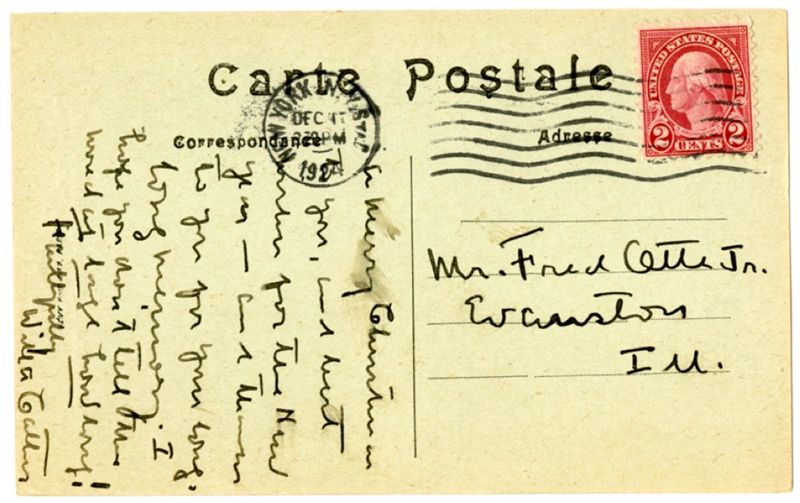 Carte Postale
Correspondance
Adresse
NEW YORK, N.Y.
DEC 17
PM
UNITED STATES POSTAGE
2 CENTS 2
A Merry Christmas
you, and best
wishes for the New
Year — and thanks
to you for your long,
long memory. I
hope you don't tell the
world at large how long!
Faithfully
Willa Cather
Mr. Fred Otte Jr.
Evanston
Ill.